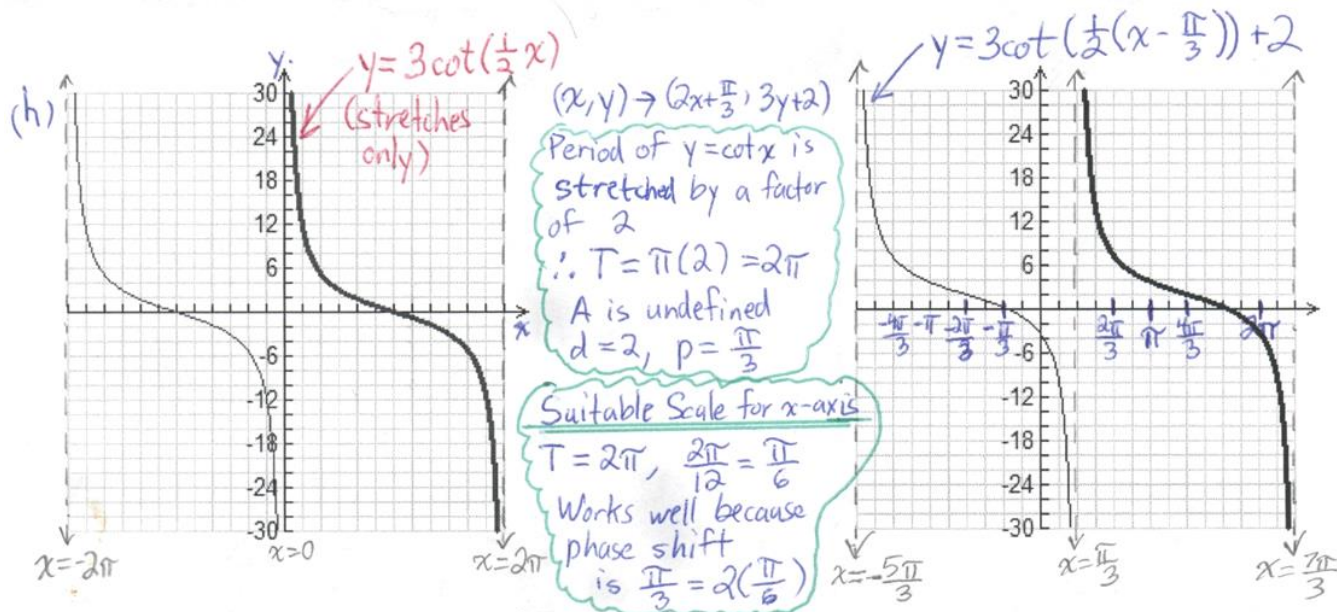 (h)
y = 3cot(½x)
(stretches
only)
y
30
24
18
12
6
-6
-12
-18
-24
-30
x
x=-2π
x=0
x=2π
(x,y) → (2x+π/3, 3y+2)
Period of y=cotx is
stretched by a factor
of 2
∴ T = π(2) = 2π
A is undefined
d = 2, p = π/3
Suitable Scale for x-axis
T = 2π, 2π/12 = π/6
Works well because
phase shift
is π/3 = 2(π/6)
y = 3cot(½(x - π/3)) + 2
30
24
18
12
6
-6
-12
-18
-24
-30
-4π/3 -π -2π/3 -π/3 2π/3 π 4π/3 2π
x=-5π/3
x=π/3
x=7π/3